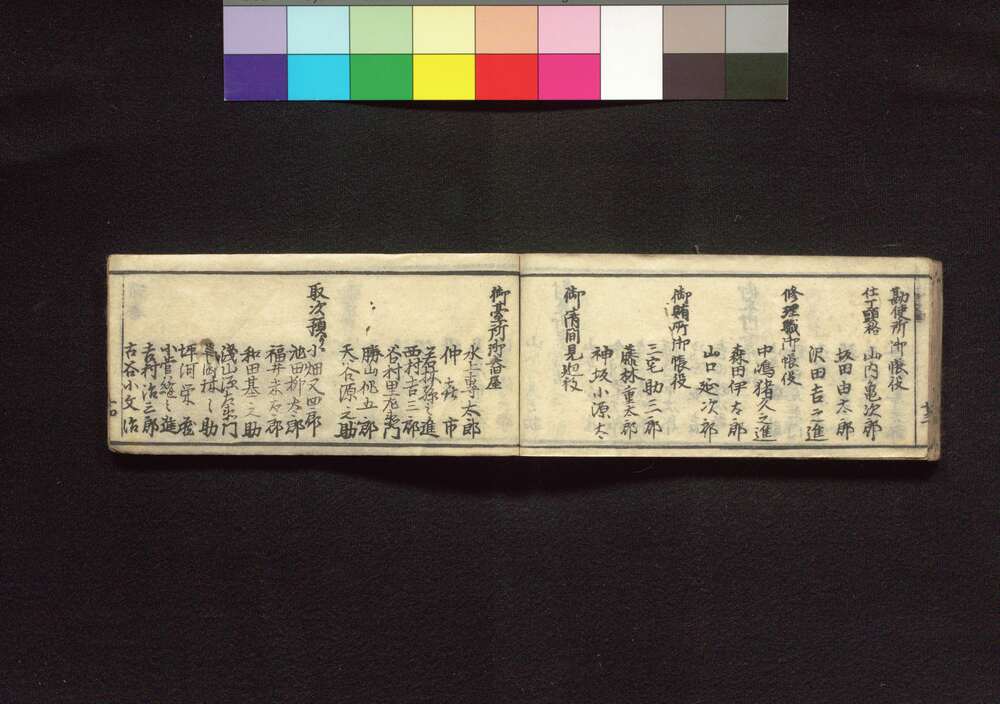 勘使所御帳役
仕丁頭格
山内亀次郎
坂田由太郎
沢田吉之進
修理職御帳役
中嶋猪久之進
森田伊太郎
山口延次郎
御賄所御帳役
三宅助三郎
藤林重太郎
御清間見廻役
神坂小源太
御臺所御番屋
水上専太郎
仲森市
若林孫之進
西村吉三郎
谷村里左衛門
勝山五郎
天谷源之助
取次預り
小畑又四郎
池田柳太郎
福井米太郎
和田基之助
浅山
林之助
坪河
小菅縫之進
吉村治三郎
古谷小文治
十四